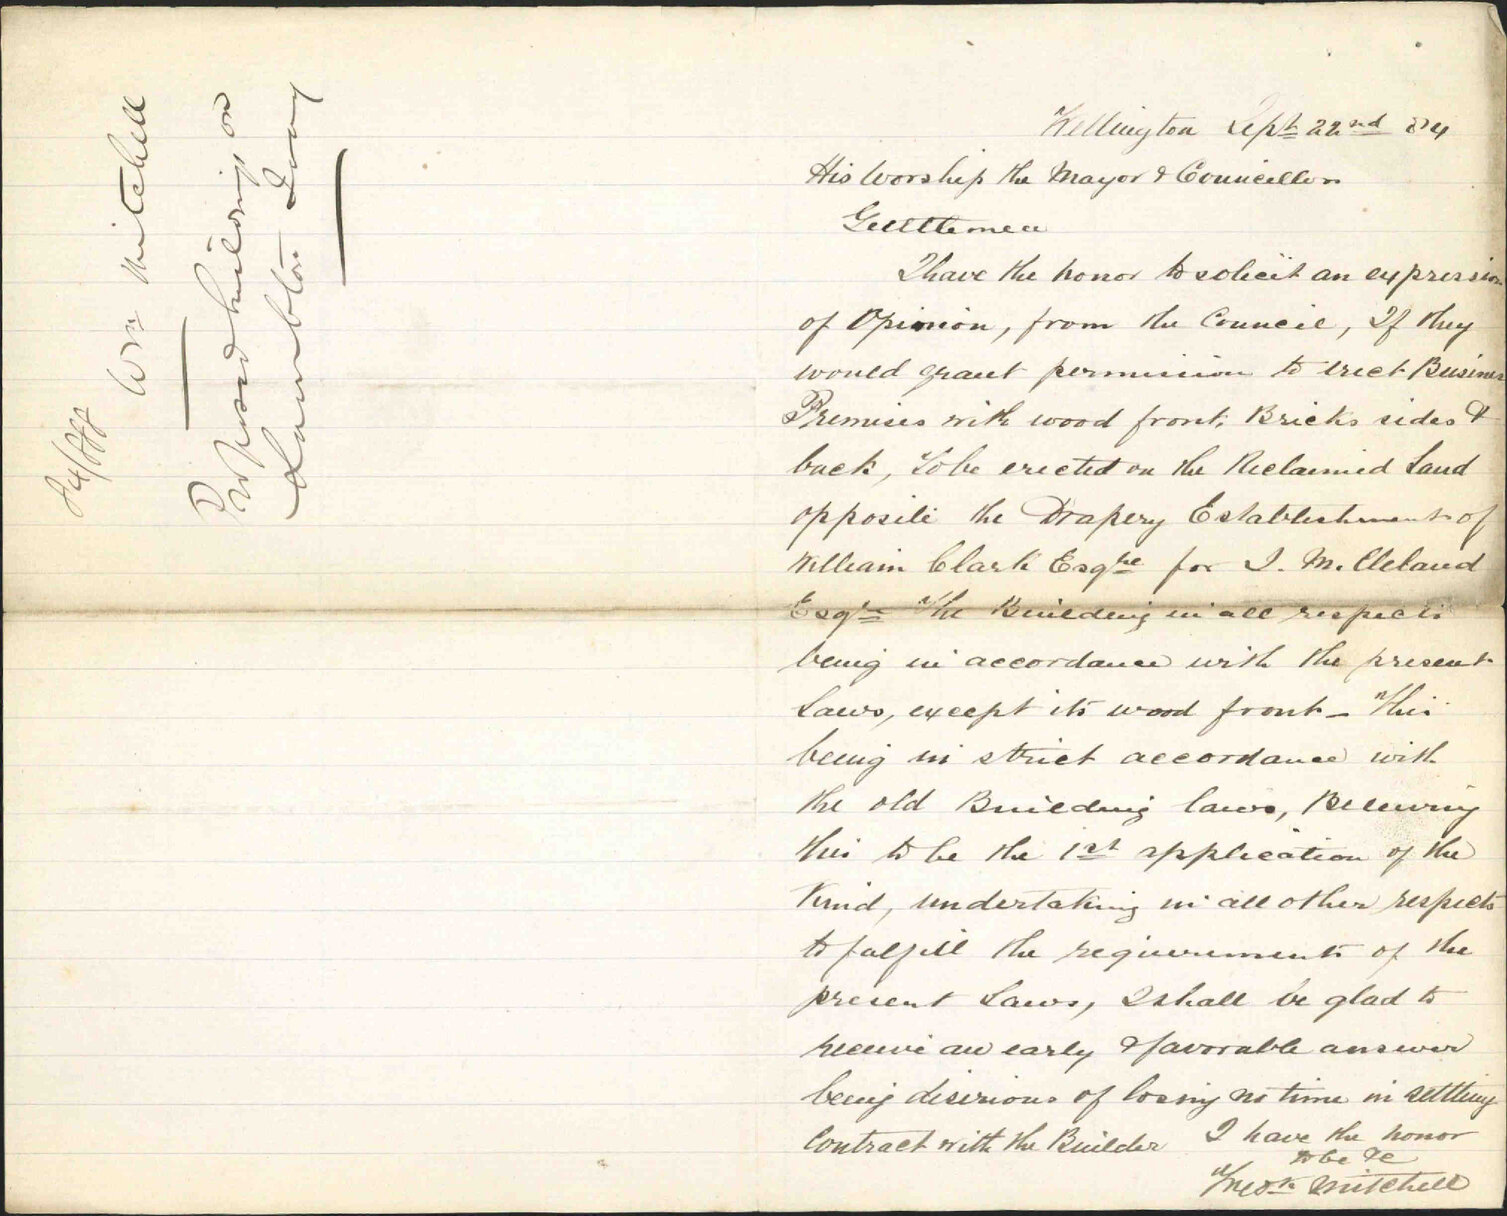 Wellington Sept 22nd 84
His Worship the Mayor & Councillors
Gentlemen
I have the honor to solicit an expression
of Opinion, from the Council, If they
would grant permission to erect Business
Premises with wood front, Bricks sides &
back, to be erected on the Reclaimed Land
opposite the Drapery Establishment of
William Clark Esqre for J. McCleland
Esqre The Building in all respects
being in accordance with the present
Laws, except its wood front - This
being in strict accordance with
the old Building laws, Believing
this to be the 1st application of the
Kind, undertaking in all other respects
to fulfill the requirements of the
present Laws, I shall be glad to
receive an early & favorable answer
being desirious of losing no time in settling
Contract with the Builder I have the honor
to be &c
Mitchell
Wm Mitchell
Proposed buildings on
Lambton Quay